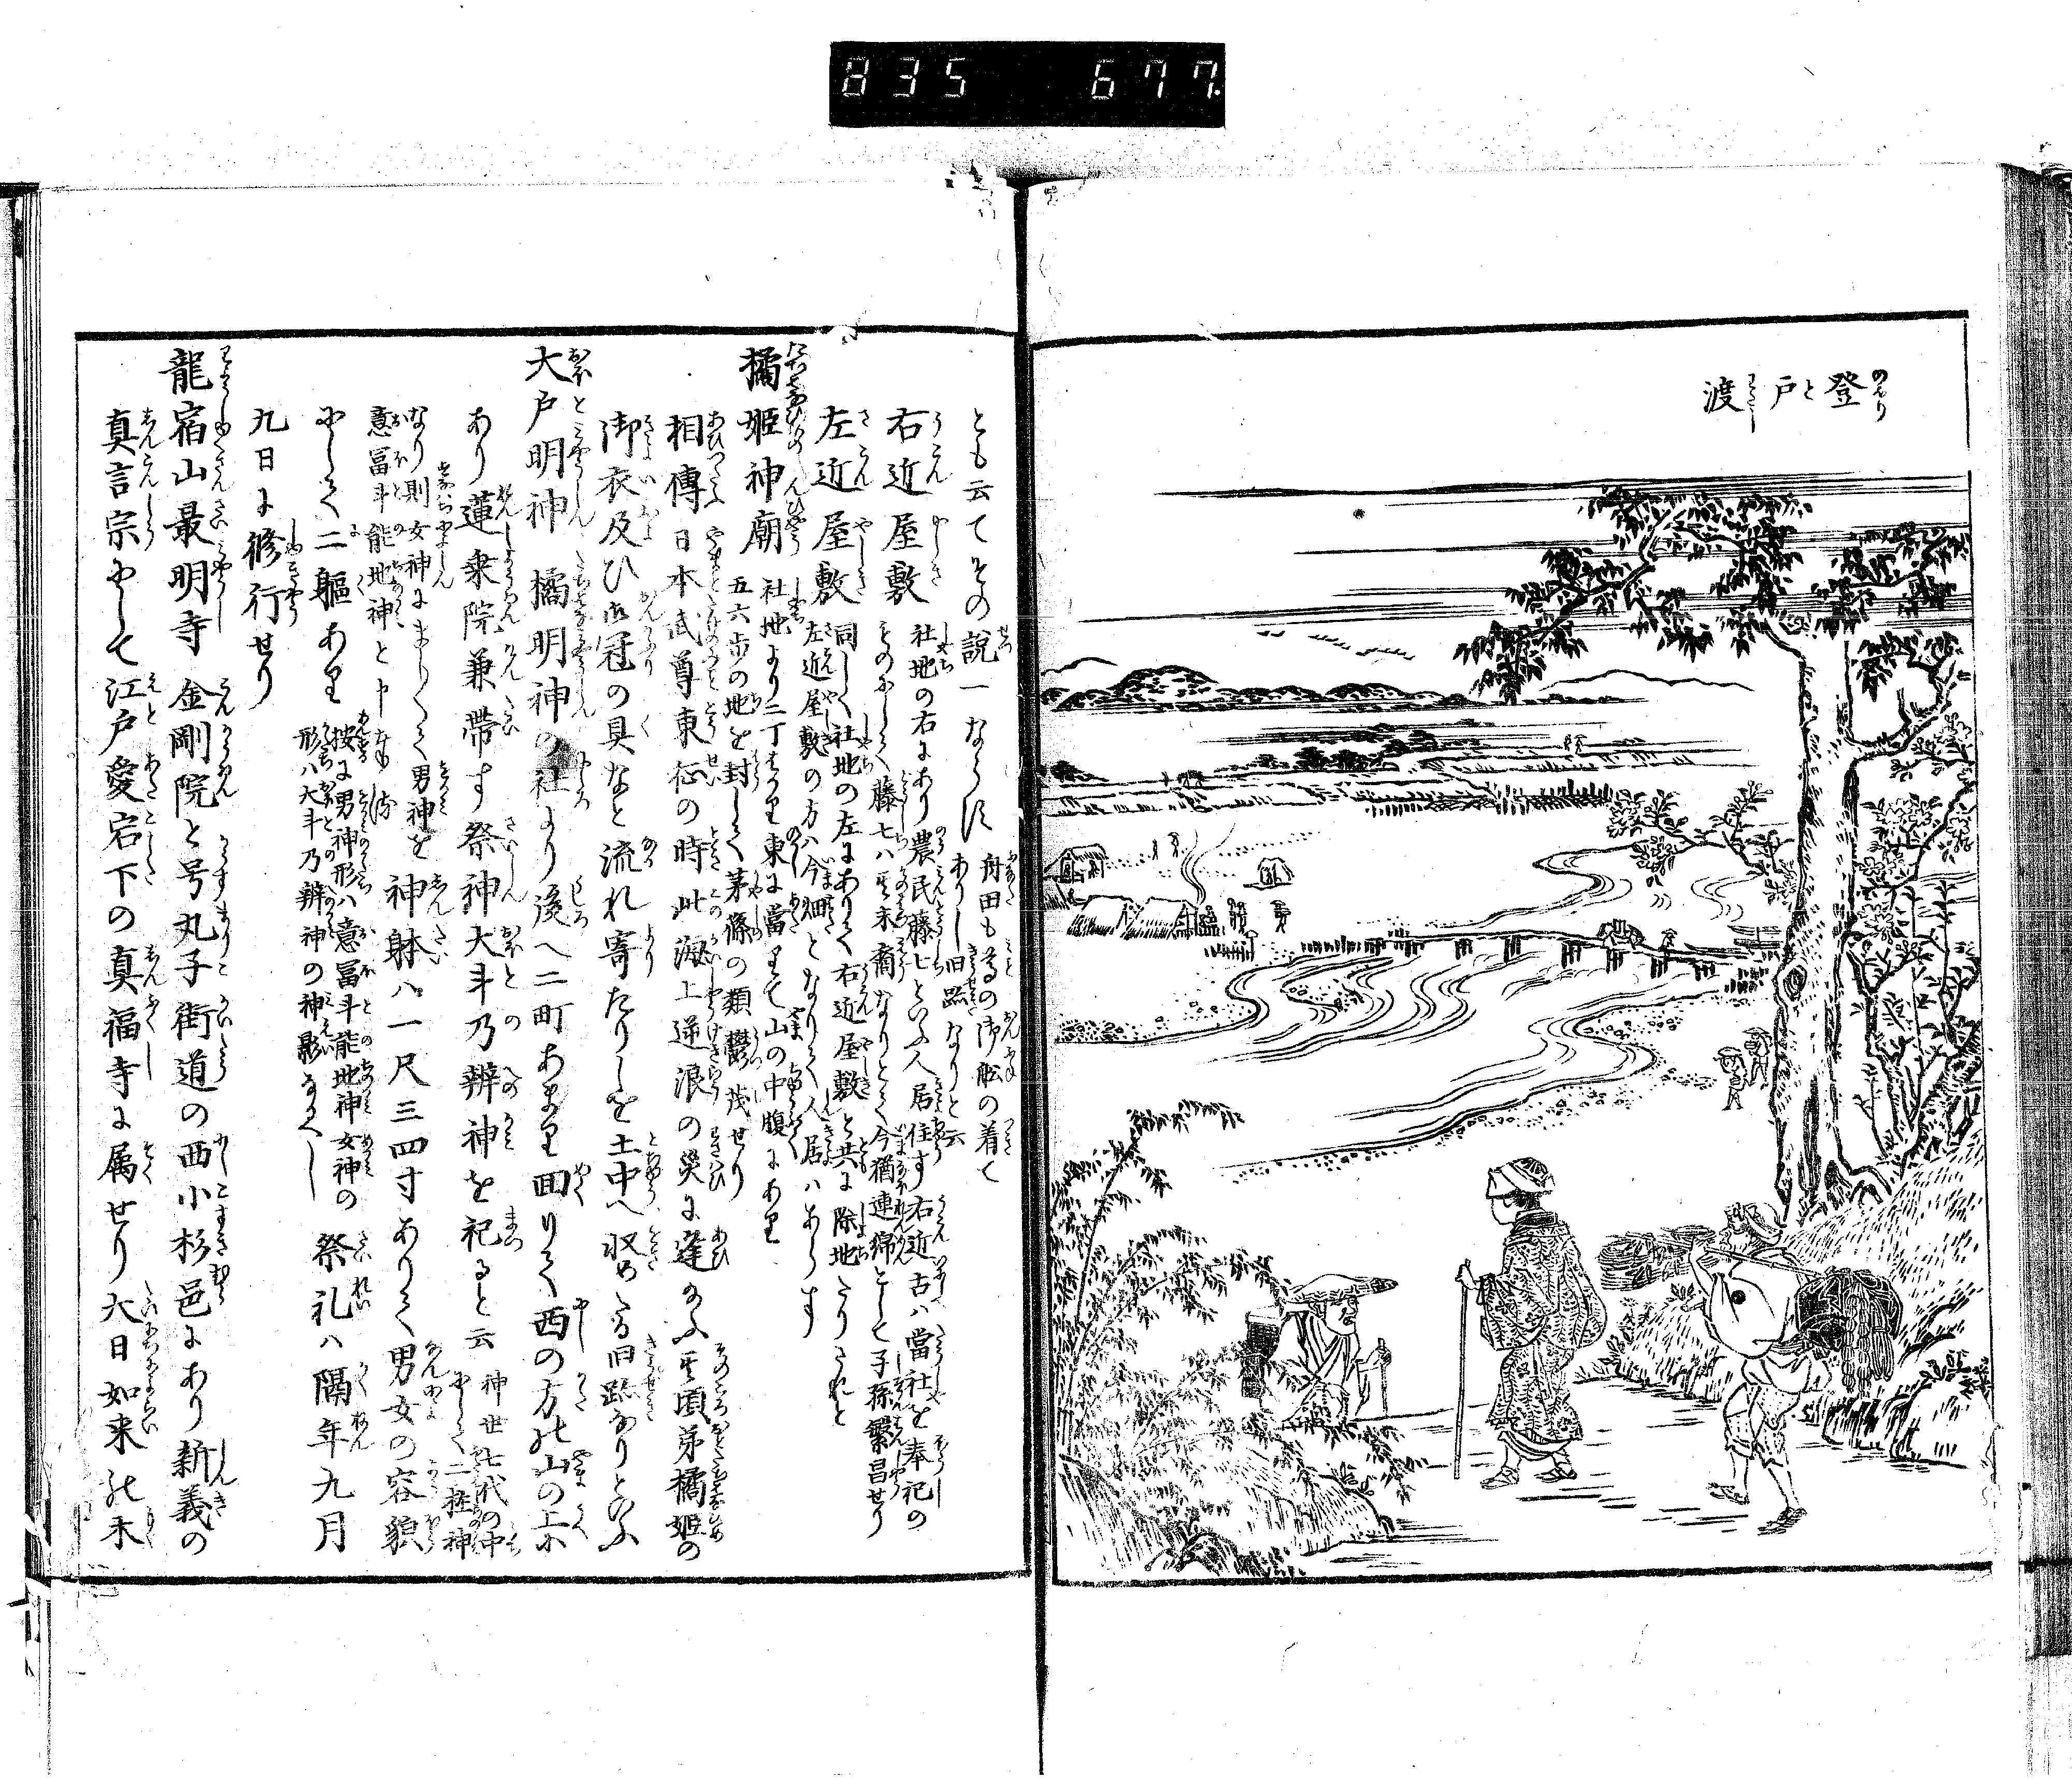 835 677.
登戸渡
とも云てその説一ならす
舟田も尊の御舩の着て
ありし旧跡なりと云
右近屋敷
社地の右にあり農民藤七といふ人居住す右近古ハ當社を奉祀の
ものにして藤七ハ其末裔なりとて今猶連綿として子孫繁昌せり
左近屋敷
同しく社地の左にありて右近屋敷と共に除地たりされと
左近屋敷の方ハ今畑となりて人居ハあらす
橘姫神廟
社地より二丁はかり東に當りて山の中腹にあり
五六歩の地を封して茅篠の類鬱茂せり
相傳日本武尊東征の時此海上逆浪の災に逢給ふ其頃弟橘姫の
御衣及ひ御冠の具なと流れ寄たりしを土中へ収めたる旧跡なりといふ
大戸明神 橘明神の社より後へ二町あまり回りて西の方の山の上に
あり蓮乗院兼帯す祭神大斗乃辨神を祀ると云
神世七代の中
にして二柱神
なり則女神にましくて男神を
意冨斗能地神と申奉る
神躰ハ一尺三四寸ありて男女の容貌
にして二軀あり
按に男神形ハ意冨斗能地神女神の
形ハ大斗乃辨神の神影なるへし
祭礼ハ隔年九月
九日に修行せり
龍宿山最明寺 金剛院と号す丸子街道の西小杉邑にあり新義の
真言宗にして江戸愛宕下の真福寺に属せり大日如来の木